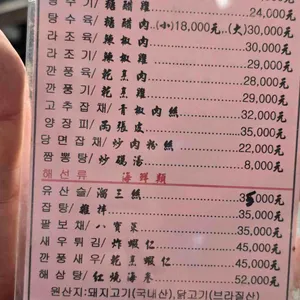 탕수기/糖醋雞 24,000元
탕수육/糖醋肉.(小)18,000元,(大)30,000元
라조육/辣椒肉 30,000元
라조기/辣椒雞 29,000元
깐풍육/乾烹肉 28,000元
깐풍기/乾烹雞 29,000元
고추잡채/青椒肉絲 32,000元
양장피/両張皮 35,000元
당면잡채/炒肉粉絲 22,000元
짬뽕탕/炒碼湯 8,000元
해선류 海鮮類
유산슬/溜三絲 35,000元
잡탕/雜拌 35,000元
팔보채/八寶菜 35,000元
새우튀김/炸蝦仁 45,000元
깐풍새우/乾烹蝦仁 45,000元
해삼탕/紅燒海參 52,000元
원산지:돼지고기(국내산),닭고기(브라질산)